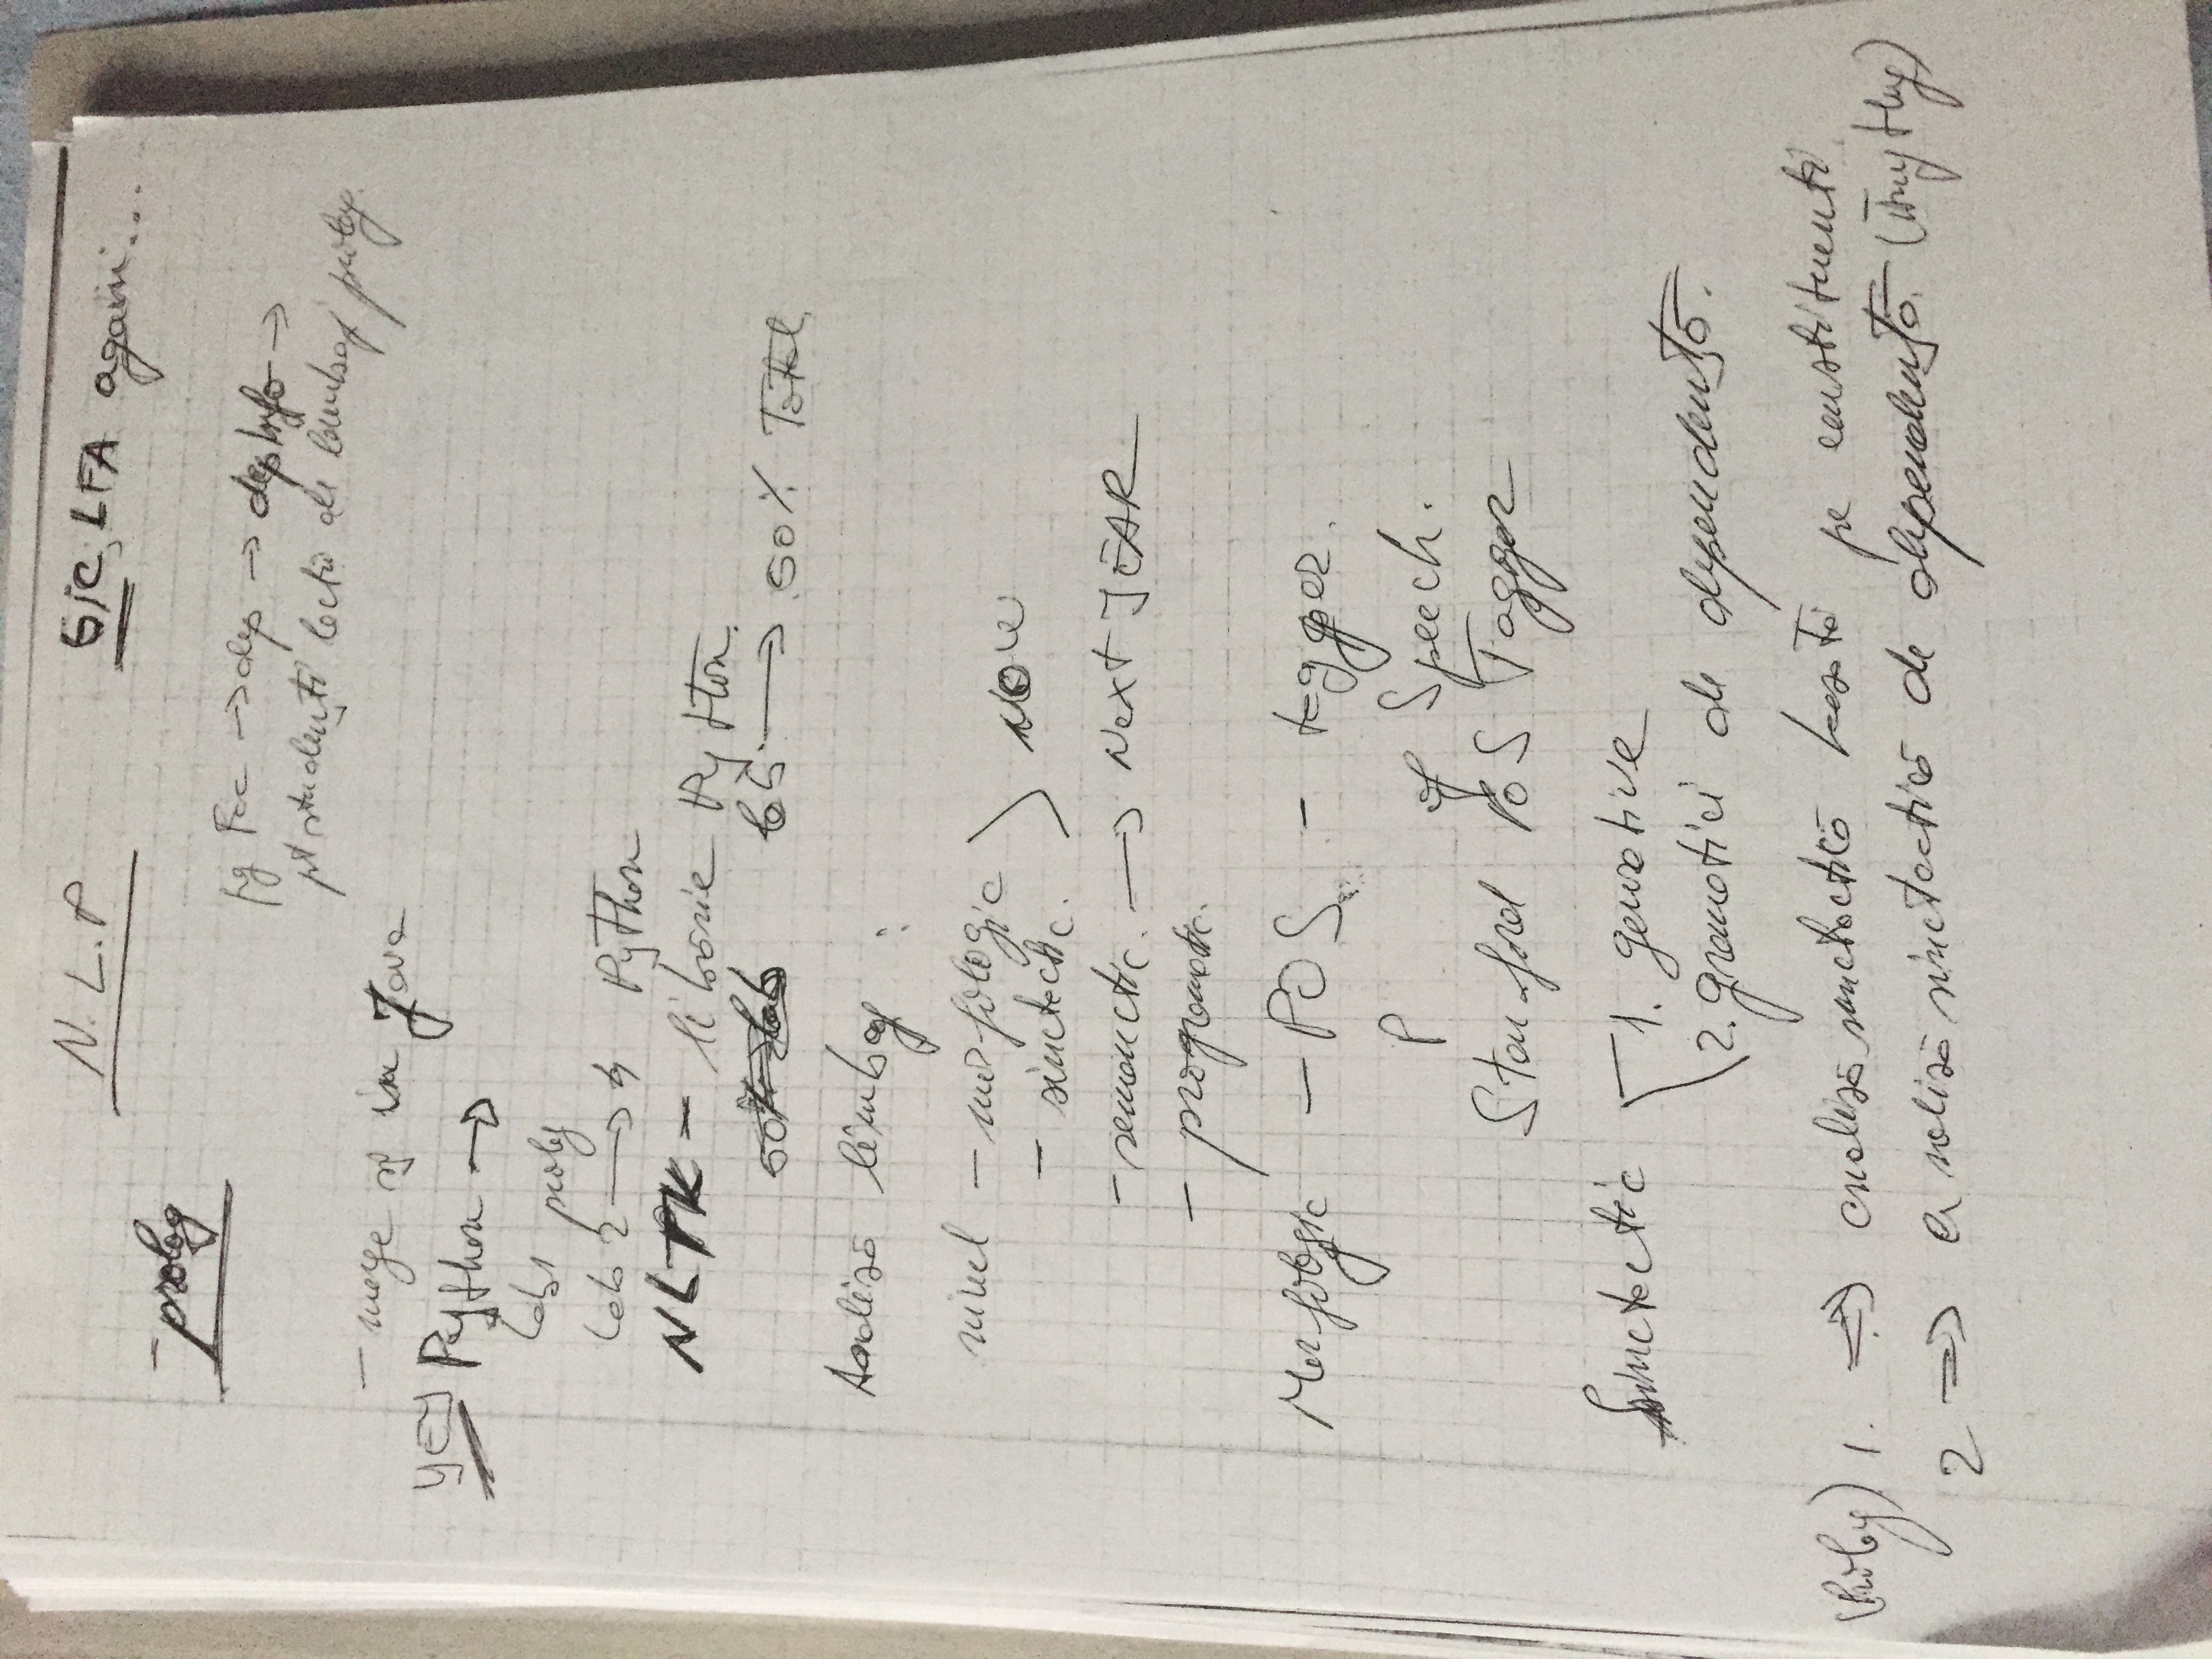 N.L.P
Sic, LFA again...
- prolog
pg Fac → dep → dep Info →
pt studenți lecții de limbaj prolog.
- merge și in Java
YEY Python →
lab1 prolog
lab 2 → 4 Python
NLTK - librărie Python.
lab → 50% Total
Analiză limbaj :
nivel - morfologic
- sinctactic. NOW
- semanctic. → Next YEAR
- pragmatic.
Morfologic - POS - tagger.
P of Speech.
Stanford PoS Tagger
Sinctactic 1. generative
2. gramatici de dependență.
(Prolog) 1. ⇒ analiză sinctactică bazată pe constituenti
2 ⇒ analiză sinctactică de dependență.